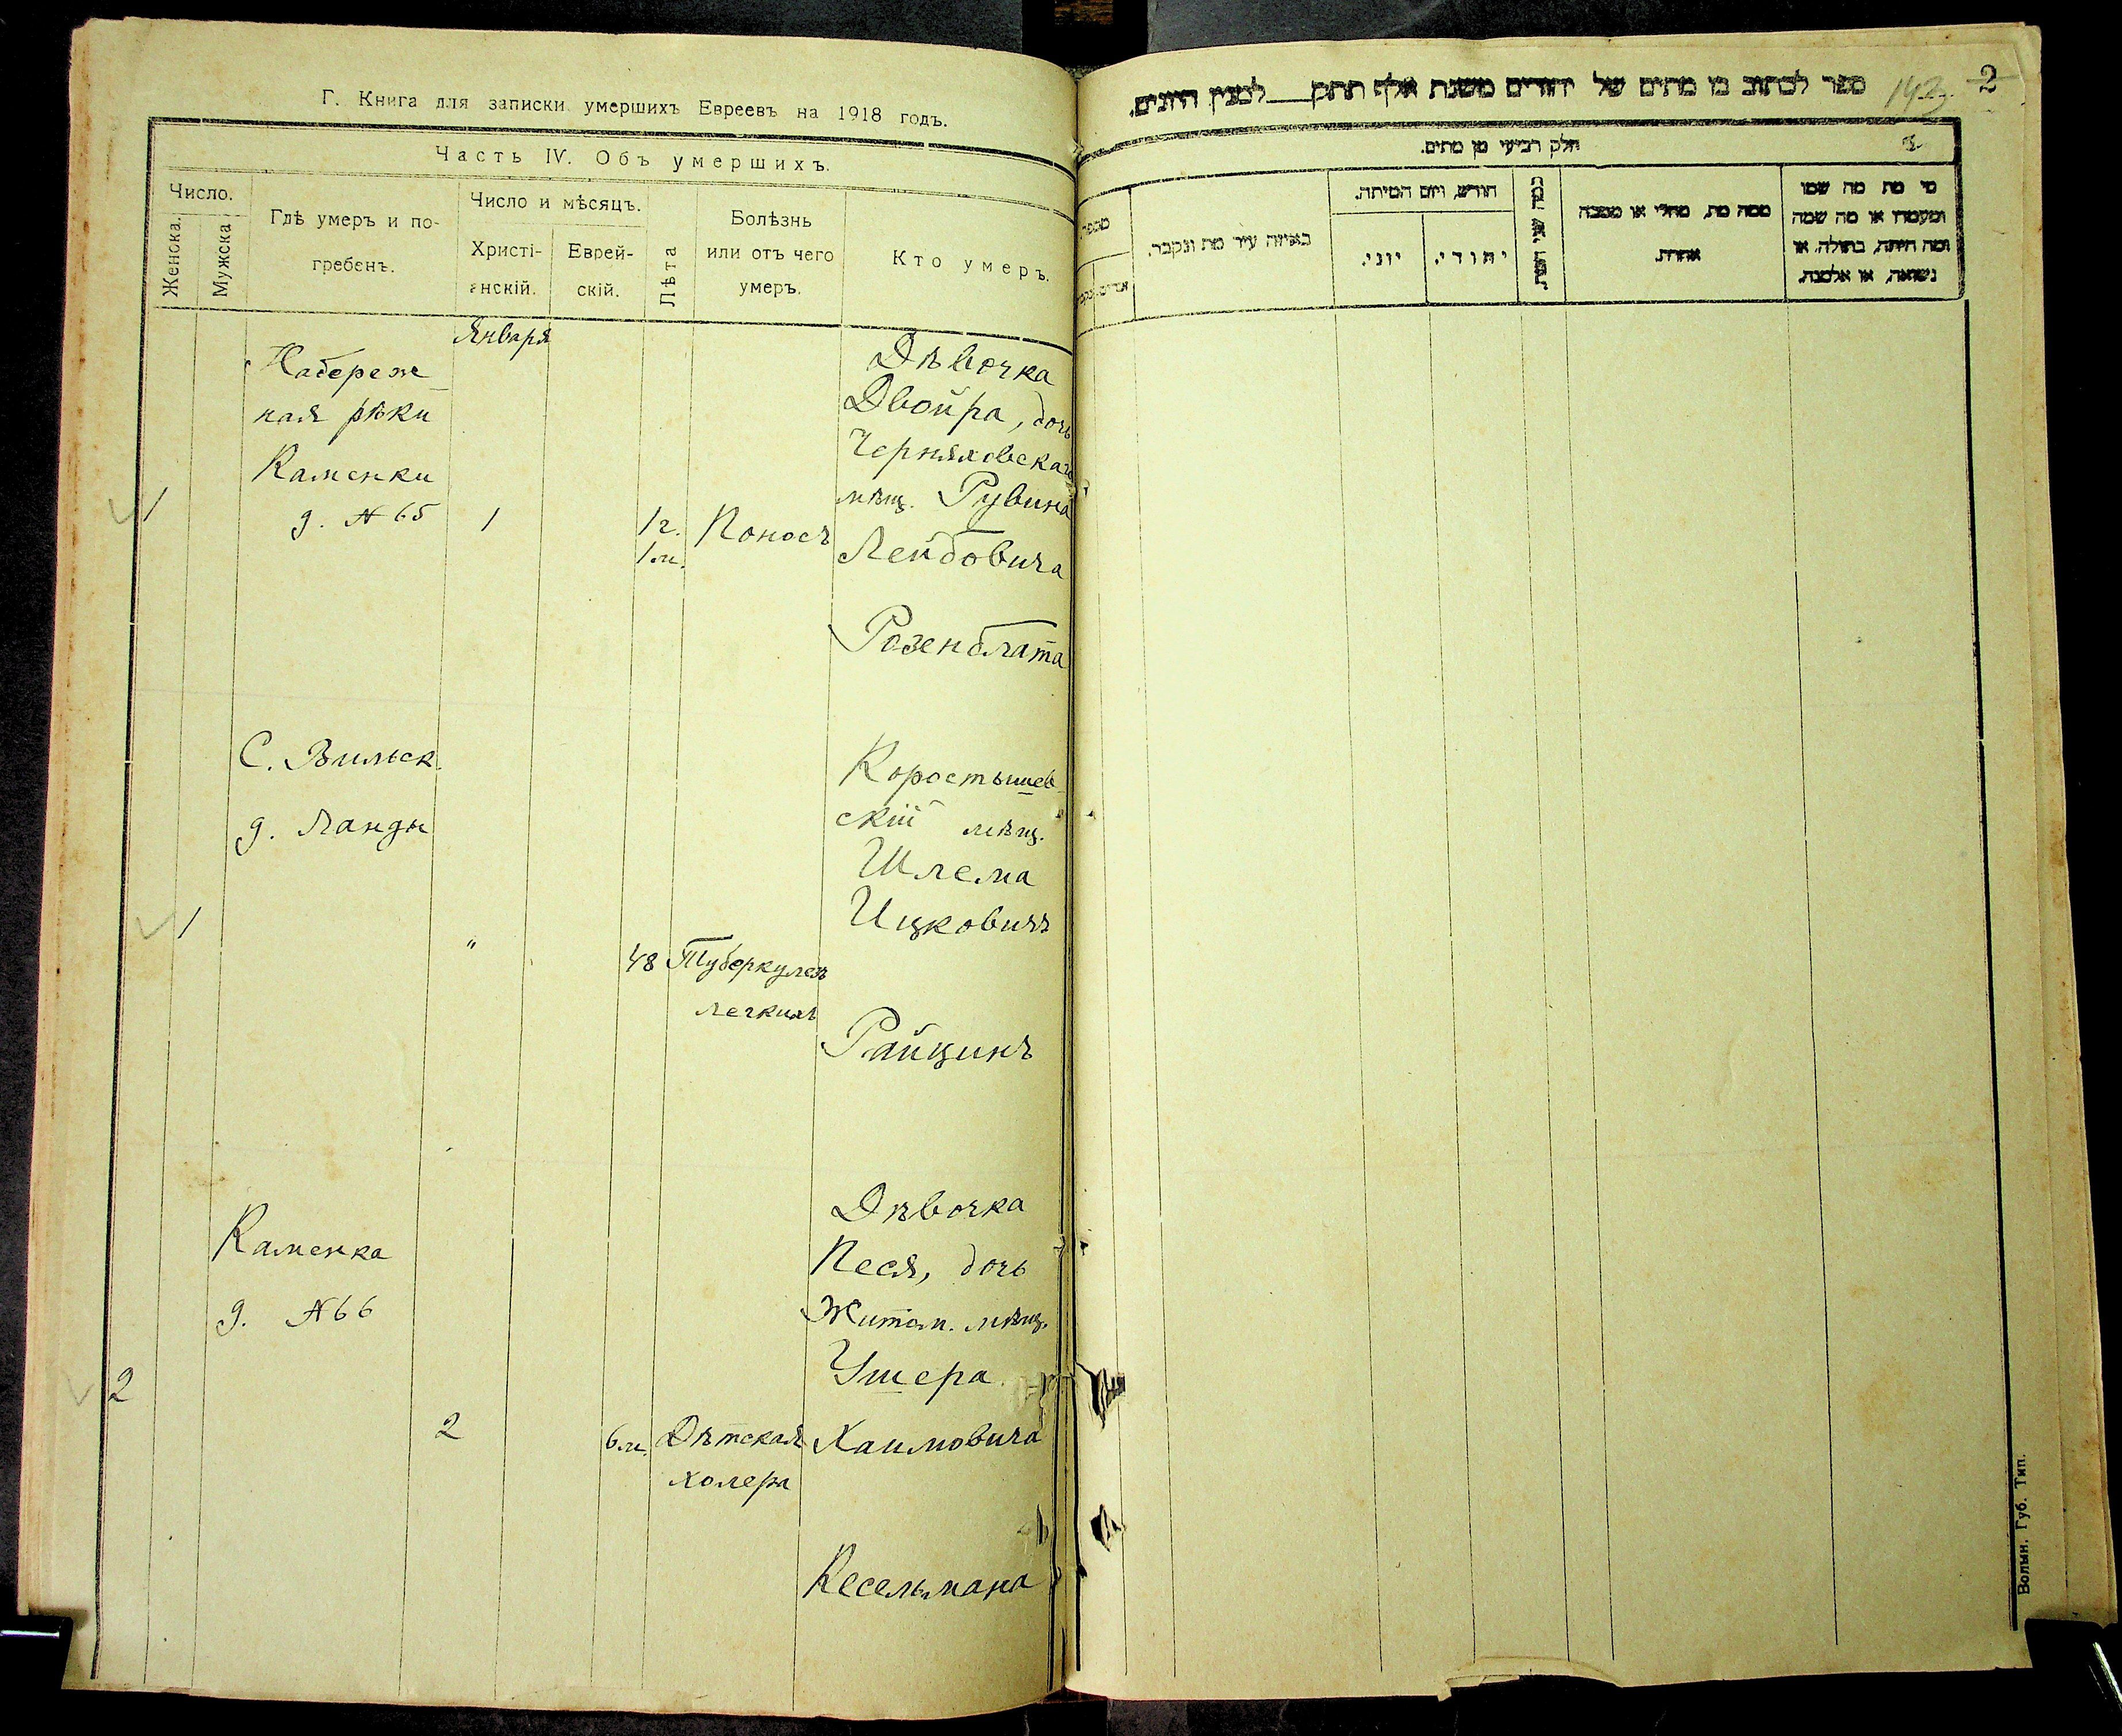 Г. Книга для записки умершихъ Евреевъ на 1918 годъ.
Часть IV. Объ умершихъ.
Число.
Женска.
Мужска
Гдѣ умеръ и по-
гребенъ.
Число и мѣсяцъ.
Христі-
анскій.
Еврей-
скій.
Лѣта
Болѣзнь
или отъ чего
умеръ.
Кто умеръ.
Января
Набереж
ная рѣки
Каменки
д. №65
1
1
1г.
1м.
Поносъ
Дѣвочка
Двойра, дочь
Черняховскаго
мѣщ. Рувина
Лейбовича
Розенблата
С. Вильск.
д. Ланды
1
"
48
Туберкулезъ
легкихъ
Коростышев
скій мѣщ.
Шлема
Ицковичъ
Райцинъ
Каменка
д. №66
2
2
6м.
Дѣтская
холера
Дѣвочка
Песя, дочь
Житом. мѣщ.
Ушера
Хаимовича
Кесельмана
ספר לכתוב בו מתים של יהודים משנת אלף תתק לממנין היונים.
143
2
חלק רביעי מן מתים.
מספר
באיזה עיר מת ונקבר.
חודש, ויום המיתה.
יוני.
יהודי.
כמה שני המת.
ממה מת, מחלי או מסבה
אחרת.
מי מת מה שמו
ומעמדו או מה שמה
ומה היתה, בתולה, או
נשואה, או אלמנה.
Волын. Губ. Тип.